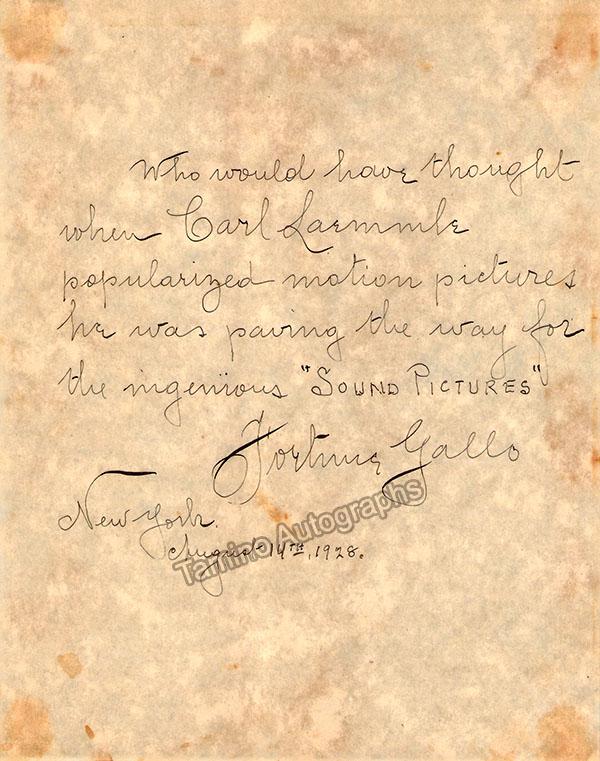 Who would have thought
when Carl Laemmle
popularized motion pictures
he was paving the way for
the ingenious "SOUND PICTURES"
Fortune Gallo
New York.
August 14TH, 1928.
Tamino Autographs